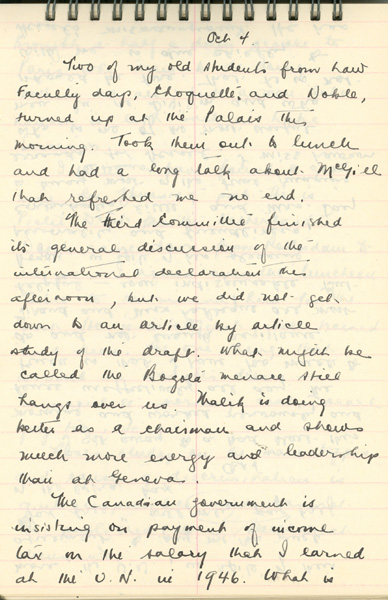 Oct 4.
Two of my old students from Law
Faculty days, Choquette and Noble,
turned up at the Palais this
morning. Took them out to lunch
and had a long talk about McGill
that refreshed me no end.
The Third Committee finished
its general discussion of the
international declaration this
afternoon, but we did not get
down to an article by article
study of the draft. What might be
called the Bogota menace still
hangs over us. Malik is doing
better as a chairman and shows
much more energy and leadership
than at Geneva.
The Canadian government is
insisting on payment of income
tax on the salary that I earned
at the U.N. in 1946. What is